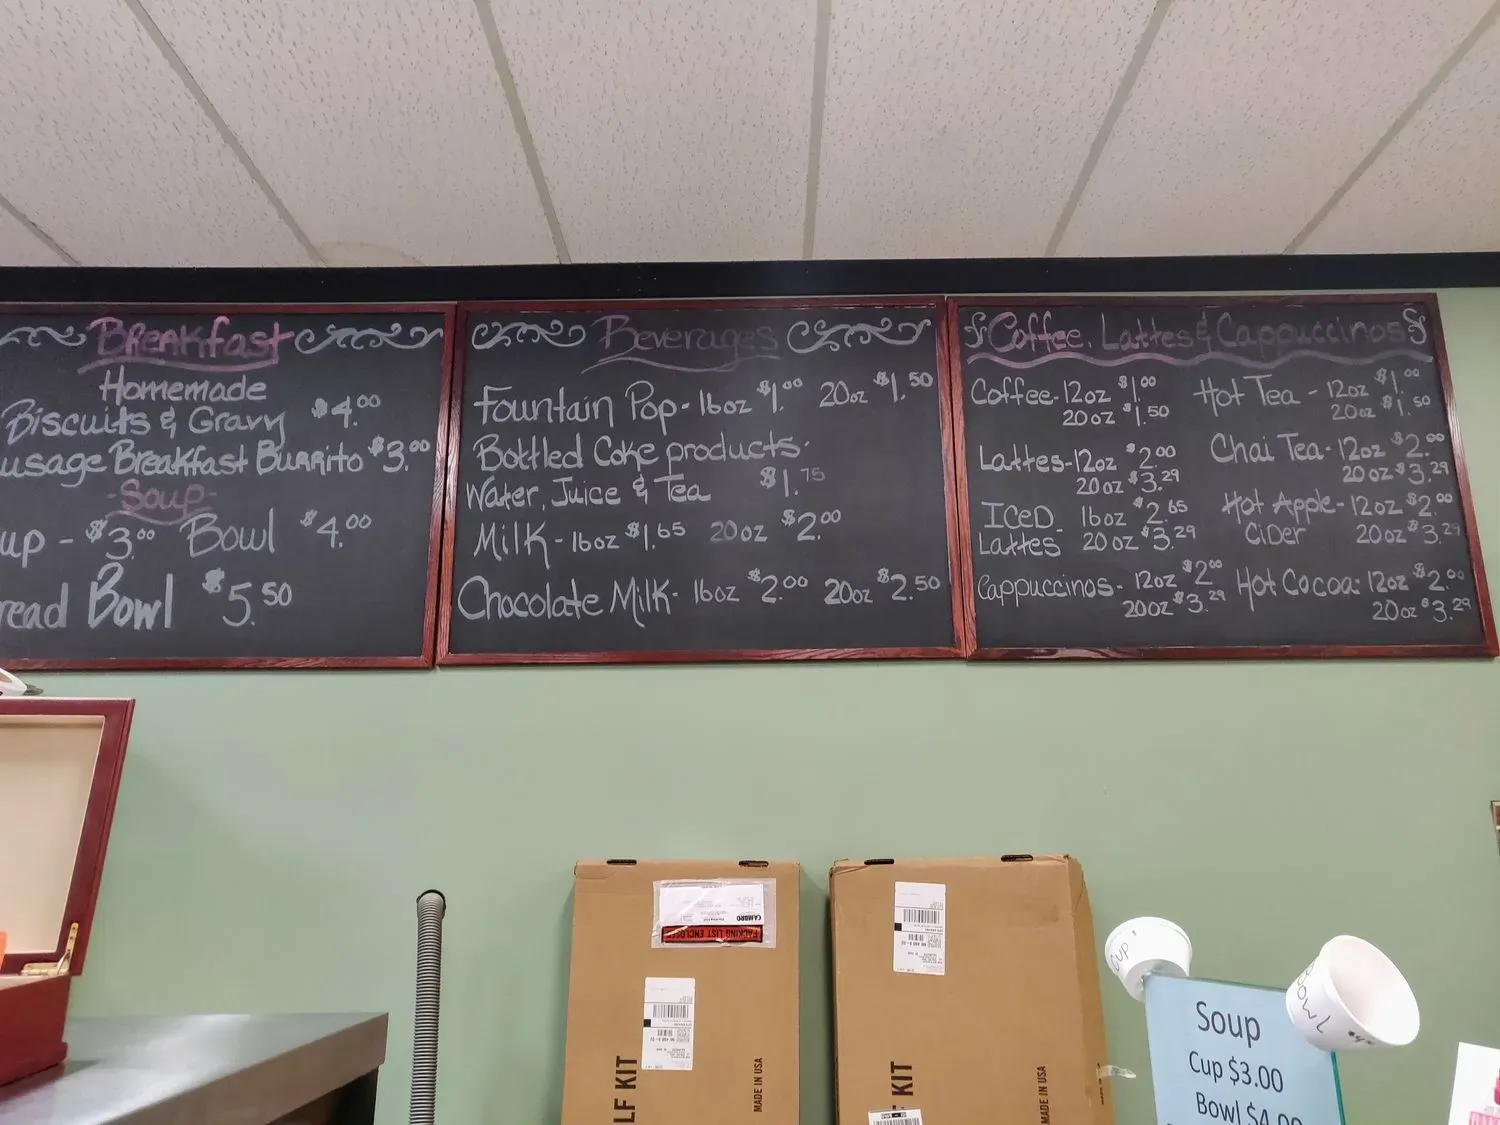 Breakfast
Homemade
Biscuits & Gravy $4.00
usage Breakfast Burrito $3.00
-Soup-
up - $3.00 Bowl $4.00
read Bowl $5.50
Beverages
Fountain Pop - 16oz $1.00 20oz $1.50
Bottled Coke products.
Water, Juice & Tea $1.75
Milk - 16oz $1.65 20oz $2.00
Chocolate Milk - 16oz $2.00 20oz $2.50
Coffee, Lattes & Cappuccinos
Coffee - 12oz $1.00
20oz $1.50
Lattes - 12oz $2.00
20oz $3.29
ICED 16oz $2.65
Lattes 20oz $3.29
Cappuccinos - 12oz $2.00
20oz $3.29
Hot Tea - 12oz $1.00
20oz $1.50
Chai Tea - 12oz $2.00
20oz $3.29
Hot Apple - 12oz $2.00
CiDer 20oz $3.29
Hot Cocoa: 12oz $2.00
20oz $3.29
CAMBRO
PACKING LIST ENCLOSED
LF KIT
MADE IN USA
F KIT
MADE IN USA
Cup
Bowl
Soup
Cup $3.00
Bowl $4.00